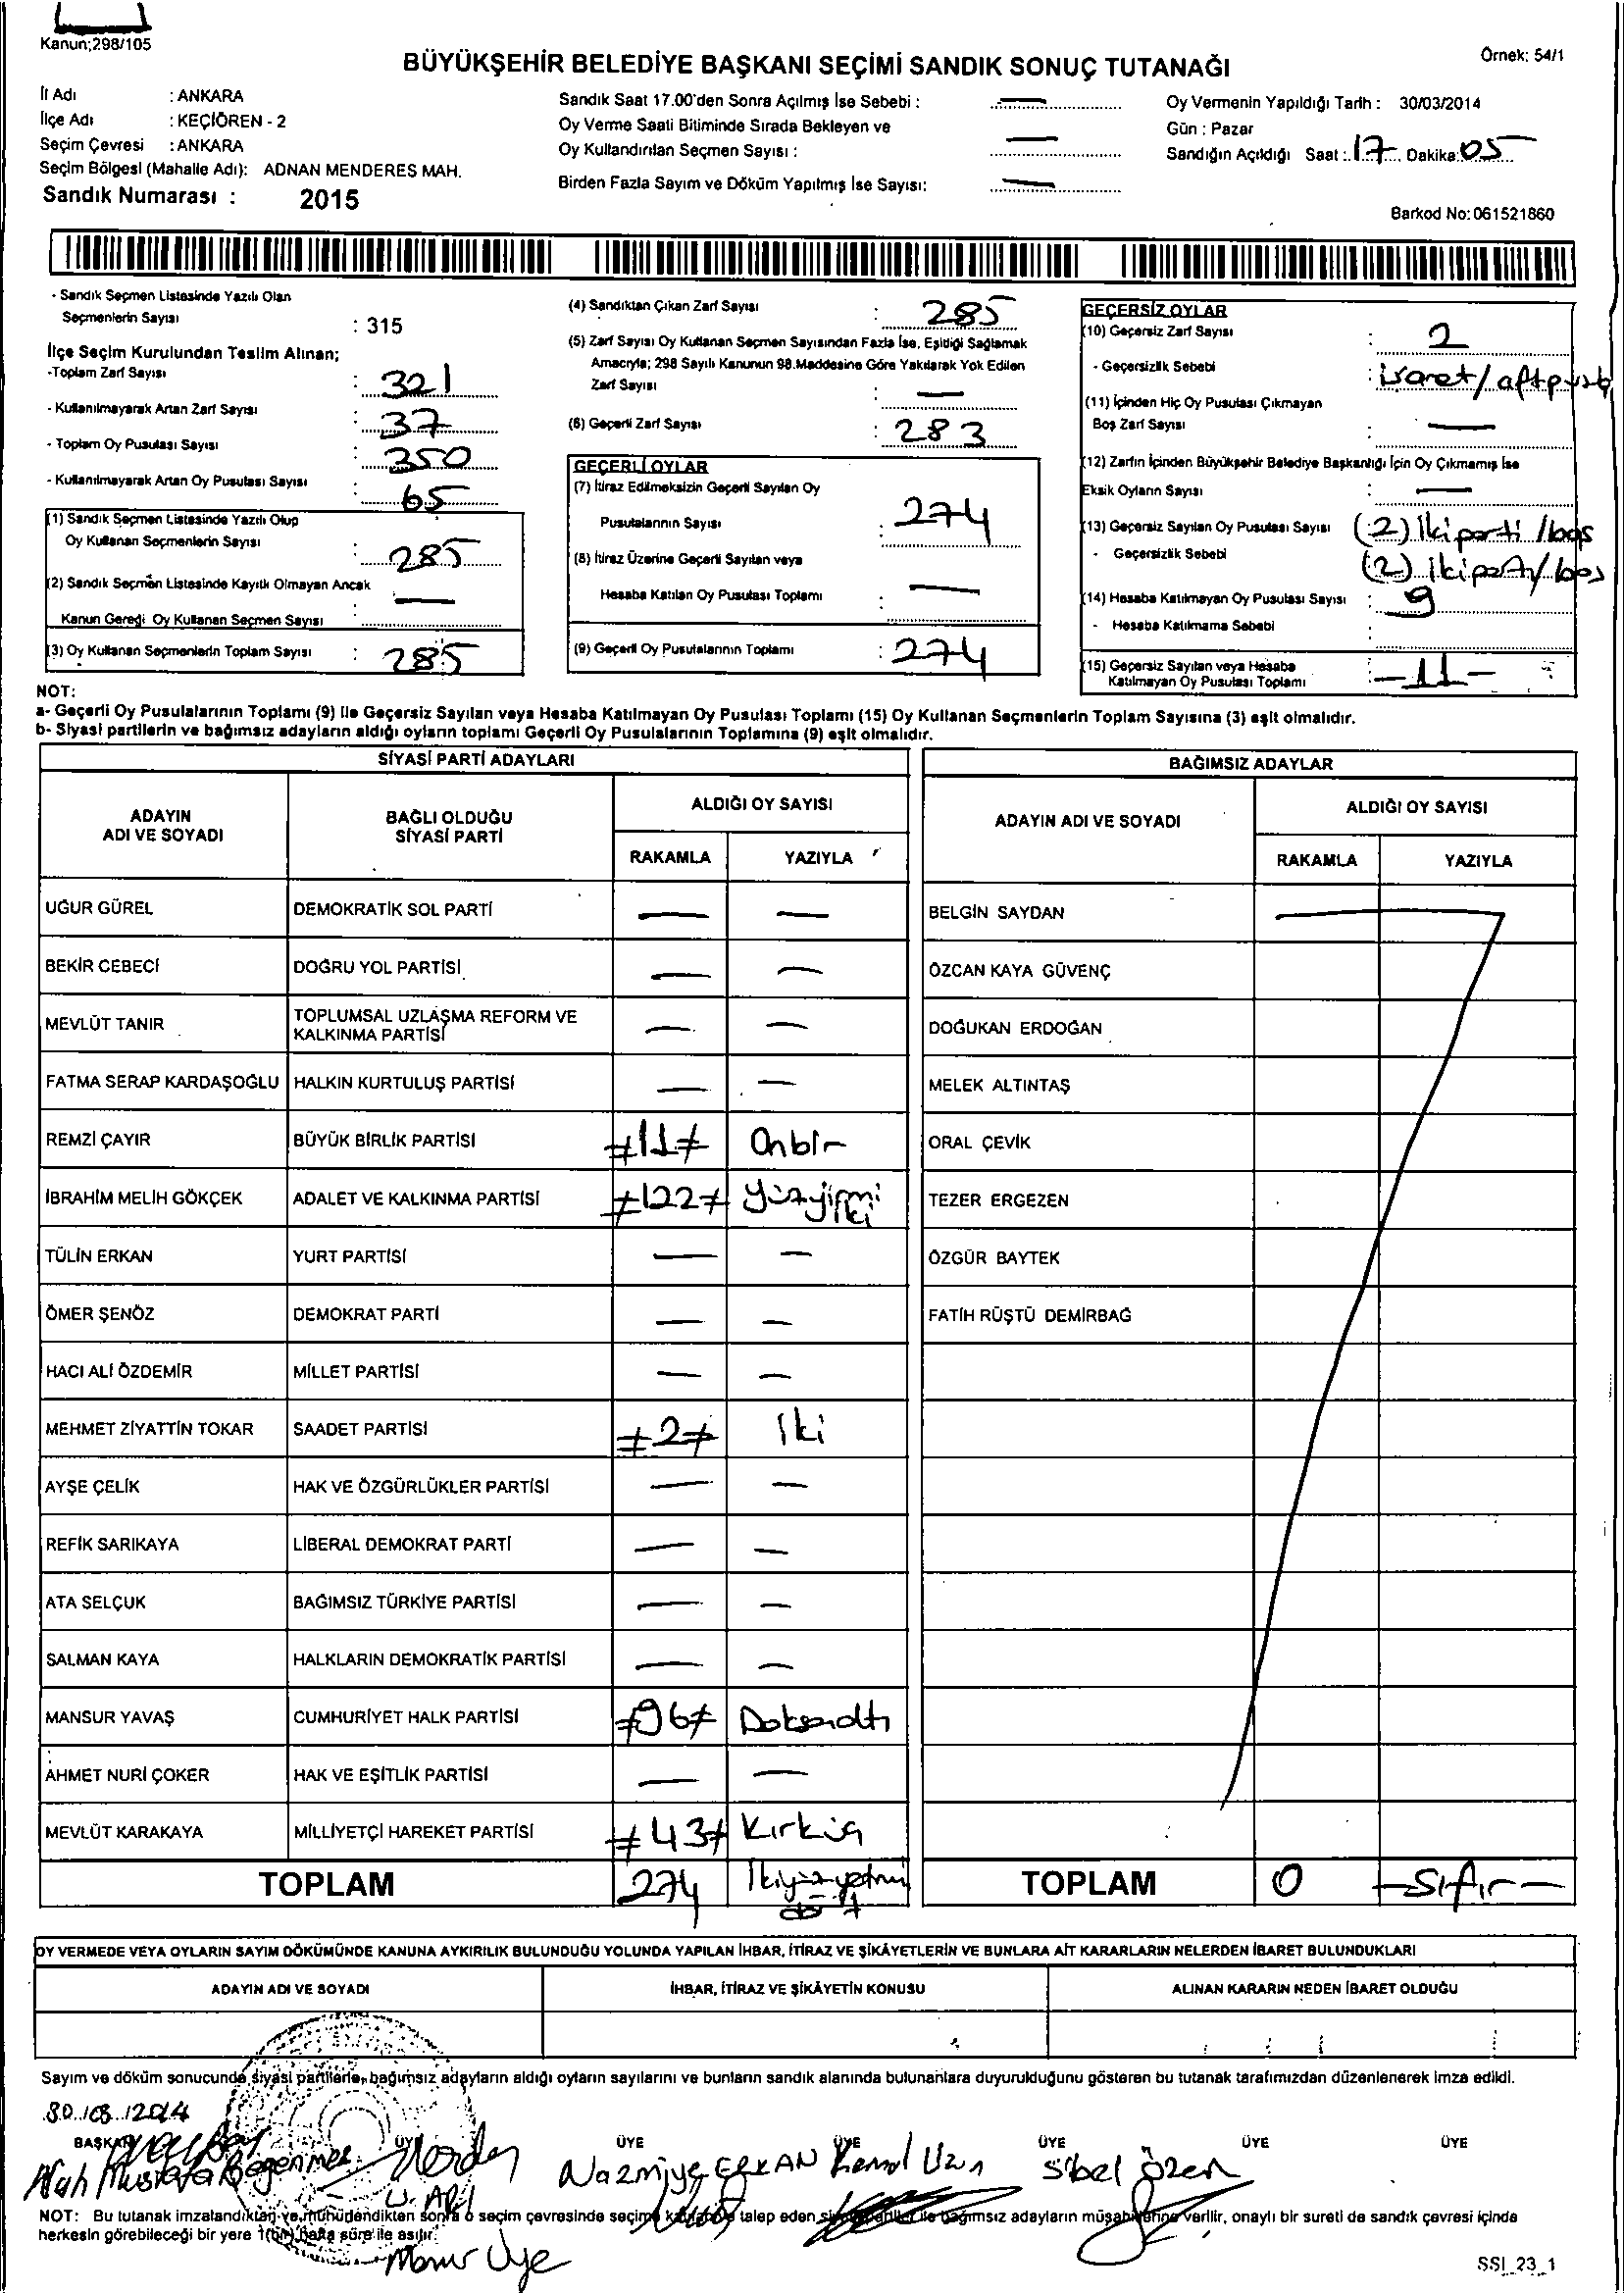 Kanun;298/105
Örnek: 54/1
BÜYÜKŞEHİR BELEDİYE BAŞKANI SEÇİMİ SANDIK SONUÇ TUTANAĞI
İl Adı : ANKARA
İlçe Adı : KEÇİÖREN - 2
Seçim Çevresi : ANKARA
Seçim Bölgesi (Mahalle Adı): ADNAN MENDERES MAH.
Sandık Numarası : 2015
Sandık Saat 17.00'den Sonra Açılmış İse Sebebi : —
Oy Verme Saati Bitiminde Sırada Bekleyen ve
Oy Kullandırılan Seçmen Sayısı : —
Birden Fazla Sayım ve Döküm Yapılmış İse Sayısı: —
Oy Vermenin Yapıldığı Tarih : 30/03/2014
Gün : Pazar
Sandığın Açıldığı Saat : 17 Dakika: 05
Barkod No: 061521860
- Sandık Seçmen Listesinde Yazılı Olan
Seçmenlerin Sayısı : 315
İlçe Seçim Kurulundan Teslim Alınan;
-Toplam Zarf Sayısı : 321
- Kullanılmayarak Artan Zarf Sayısı : 37
- Toplam Oy Pusulası Sayısı : 350
- Kullanılmayarak Artan Oy Pusulası Sayısı : 65
(1) Sandık Seçmen Listesinde Yazılı Olup
Oy Kullanan Seçmenlerin Sayısı : 285
(2) Sandık Seçmen Listesinde Kayıtlı Olmayan Ancak
Kanun Gereği Oy Kullanan Seçmen Sayısı : —
(3) Oy Kullanan Seçmenlerin Toplam Sayısı : 285
(4) Sandıktan Çıkan Zarf Sayısı : 285
(5) Zarf Sayısı Oy Kullanan Seçmen Sayısından Fazla İse, Eşitliği Sağlamak
Amacıyla; 298 Sayılı Kanunun 98.Maddesine Göre Yakılarak Yok Edilen
Zarf Sayısı : —
(6) Geçerli Zarf Sayısı : 283
GEÇERLİ OYLAR
(7) İtiraz Edilmeksizin Geçerli Sayılan Oy
Pusulalarının Sayısı : 274
(8) İtiraz Üzerine Geçerli Sayılan veya
Hesaba Katılan Oy Pusulası Toplamı : —
(9) Geçerli Oy Pusulalarının Toplamı : 274
GEÇERSİZ OYLAR
(10) Geçersiz Zarf Sayısı : 2
- Geçersizlik Sebebi : isaret/
(11) İçinden Hiç Oy Pusulası Çıkmayan
Boş Zarf Sayısı : —
(12) Zarfın İçinden Büyükşehir Belediye Başkanlığı İçin Oy Çıkmamış İse
Eksik Oyların Sayısı : —
(13) Geçersiz Sayılan Oy Pusulası Sayısı (2) iki parti /boş
- Geçersizlik Sebebi (2) iki parti/ boş
(14) Hesaba Katılmayan Oy Pusulası Sayısı : 9
- Hesaba Katılmama Sebebi :
(15) Geçersiz Sayılan veya Hesaba
Katılmayan Oy Pusulası Toplamı : -11-
NOT:
a- Geçerli Oy Pusulalarının Toplamı (9) ile Geçersiz Sayılan veya Hesaba Katılmayan Oy Pusulası Toplamı (15) Oy Kullanan Seçmenlerin Toplam Sayısına (3) eşit olmalıdır.
b- Siyasi partilerin ve bağımsız adayların aldığı oyların toplamı Geçerli Oy Pusulalarının Toplamına (9) eşit olmalıdır.
SİYASİ PARTİ ADAYLARI
ADAYIN ADI VE SOYADI
BAĞLI OLDUĞU SİYASİ PARTİ
ALDIĞI OY SAYISI
RAKAMLA YAZIYLA
UĞUR GÜREL DEMOKRATİK SOL PARTİ — —
BEKİR CEBECİ DOĞRU YOL PARTİSİ — —
MEVLÜT TANIR TOPLUMSAL UZLAŞMA REFORM VE KALKINMA PARTİSİ — —
FATMA SERAP KARDAŞOĞLU HALKIN KURTULUŞ PARTİSİ — —
REMZİ ÇAYIR BÜYÜK BİRLİK PARTİSİ ≠11≠ Onbir
İBRAHİM MELİH GÖKÇEK ADALET VE KALKINMA PARTİSİ ≠122≠ yüzyirmi iki
TÜLİN ERKAN YURT PARTİSİ — —
ÖMER ŞENÖZ DEMOKRAT PARTİ — —
HACI ALİ ÖZDEMİR MİLLET PARTİSİ — —
MEHMET ZİYATTİN TOKAR SAADET PARTİSİ ≠2≠ İki
AYŞE ÇELİK HAK VE ÖZGÜRLÜKLER PARTİSİ — —
REFİK SARIKAYA LİBERAL DEMOKRAT PARTİ — —
ATA SELÇUK BAĞIMSIZ TÜRKİYE PARTİSİ — —
SALMAN KAYA HALKLARIN DEMOKRATİK PARTİSİ — —
MANSUR YAVAŞ CUMHURİYET HALK PARTİSİ ≠96≠ Doksanaltı
AHMET NURİ ÇOKER HAK VE EŞİTLİK PARTİSİ — —
MEVLÜT KARAKAYA MİLLİYETÇİ HAREKET PARTİSİ ≠43≠ Kırküç
TOPLAM 274 İkiyüzyetmiş dört
BAĞIMSIZ ADAYLAR
ADAYIN ADI VE SOYADI
ALDIĞI OY SAYISI
RAKAMLA YAZIYLA
BELGİN SAYDAN
ÖZCAN KAYA GÜVENÇ
DOĞUKAN ERDOĞAN
MELEK ALTINTAŞ
ORAL ÇEVİK
TEZER ERGEZEN
ÖZGÜR BAYTEK
FATİH RÜŞTÜ DEMİRBAĞ
TOPLAM 0 -sıfır-
OY VERMEDE VEYA OYLARIN SAYIM DÖKÜMÜNDE KANUNA AYKIRILIK BULUNDUĞU YOLUNDA YAPILAN İHBAR, İTİRAZ VE ŞİKÂYETLERİN VE BUNLARA AİT KARARLARIN NELERDEN İBARET BULUNDUKLARI
ADAYIN ADI VE SOYADI İHBAR, İTİRAZ VE ŞİKÂYETİN KONUSU ALINAN KARARIN NEDEN İBARET OLDUĞU
Sayım ve döküm sonucunda siyasi partilerle, bağımsız adayların aldığı oyların sayılarını ve bunların sandık alanında bulunanlara duyurulduğunu gösteren bu tutanak tarafımızdan düzenlenerek imza edildi.
30/03/2014
BAŞKAN ÜYE ÜYE ÜYE ÜYE ÜYE ÜYE
Nazmiye ERKAN Kemal Uzun Sibel Özen
NOT: Bu tutanak imzalandıktan ve mühürlendikten sonra o seçim çevresinde seçime katılan ve talep eden siyasi partiler ile bağımsız adayların müşahitlerine verilir, onaylı bir sureti de sandık çevresi içinde
herkesin görebileceği bir yere 1(bir) hafta süre ile asılır.
Memur Üye
SSI_23_1